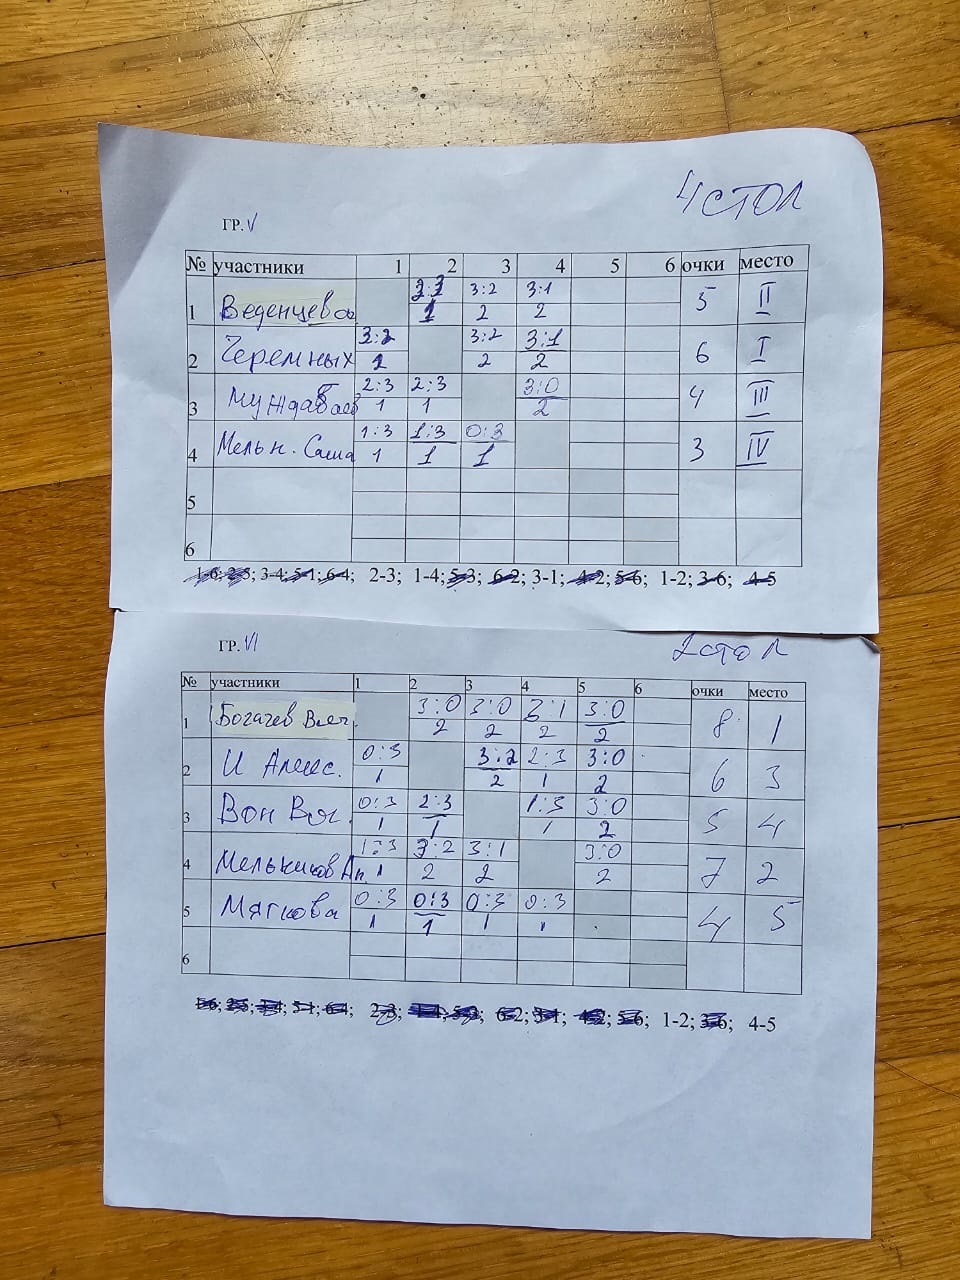 4 СТОЛ
ГР. V
№ участники 1 2 3 4 5 6 очки место
1 Веденцева 3:2 3:1 5 II
1 2 2
2 Черемных 3:2 3:1 6 I
2 2 2
3 Муждабаев 2:3 2:3 3:0 4 III
1 1 2
4 Мельн. Саша 1:3 1:3 0:3 3 IV
1 1 1
5
6
1-6; 2-5; 3-4; 5-1; 6-4; 2-3; 1-4; 5-3; 6-2; 3-1; 4-2; 5-6; 1-2; 3-6; 4-5
ГР. VI
2 СТОЛ
№ участники 1 2 3 4 5 6 очки место
1 Богачев 3:0 3:0 3:1 3:0 8 1
2 2 2 2
2 0:3 3:2 2:3 3:0 6 3
1 2 1 2
3 Вон 0:3 2:3 1:3 3:0 5 4
1 1 1 2
4 Мельников Ан. 1:3 3:2 3:1 3:0 7 2
1 2 2 2
5 Мягкова 0:3 0:3 0:3 0:3 4 5
1 1 1 1
6
1-6; 2-5; 3-4; 5-1; 6-4; 2-3; 1-4; 5-3; 6-2; 3-1; 4-2; 5-6; 1-2; 3-6; 4-5